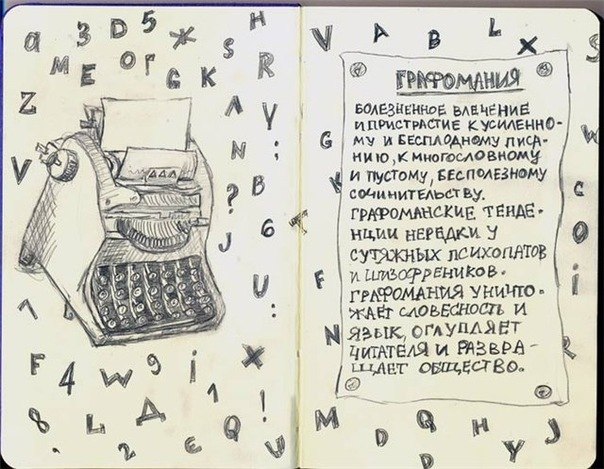 a 3 D 5 * H
M E O Г G K S R
Z Λ У ;
V N
? B
J 6
U :
F 4 W 9 i X
8 L Д 1 !
2 е Q U
V A B L X S
G
K W
C
O
F i
N R
M D Q H J
D D Y
ГРАФОМАНИЯ
БОЛЕЗНЕННОЕ ВЛЕЧЕНИЕ
И ПРИСТРАСТИЕ К УСИЛЕННО-
МУ И БЕСПЛОДНОМУ ПИСА-
НИЮ, К МНОГОСЛОВНОМУ
И ПУСТОМУ, БЕСПОЛЕЗНОМУ
СОЧИНИТЕЛЬСТВУ.
ГРАФОМАНСКИЕ ТЕНДЕ-
НЦИИ НЕРЕДКИ У
СУТЯЖНЫХ ПСИХОПАТОВ
И ШИЗОФРЕНИКОВ.
ГРАФОМАНИЯ УНИЧТО-
ЖАЕТ СЛОВЕСНОСТЬ И
ЯЗЫК, ОГЛУПЛЯЕТ
ЧИТАТЕЛЯ И РАЗВРА-
ЩАЕТ ОБЩЕСТВО.